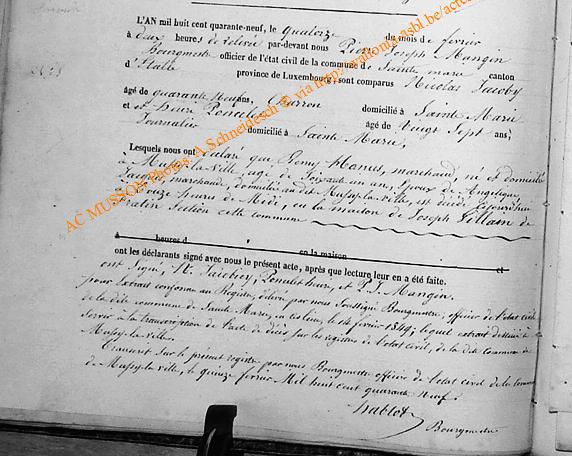 L'AN mil huit cent quarante-neuf, le quatorze du mois de février
à deux heures de relevée par-devant nous Pierre Joseph Mangin
Bourgmestre officier de l'état civil de la commune de Sainte marie canton
d'Etalle province de Luxembourg, sont comparus Nicolas Jacoby
N° 3
âgé de quarante neuf ans, Charron domicilié à Sainte Marie
et et heure Poncelet âgé de Vingt Sept ans;
Journalier domicilié à Sainte Marie,
Lesquels nous ont déclaré que Remy hanus, marchand, né et domicilié
à Mussy-la-ville agé de Soixante un ans, Epoux de Angelique
marchande, domiciliée audit Mussy-la-ville, est décédé aujourd'hui
à onze heures de Midi, en la maison de Joseph Gillain de
fratin Section cette commune
à heures d , en la maison et
ont les déclarants signé avec nous le présent acte, après que lecture leur en a été faite.
ont Signé, N. Jacoby, et P. J. Mangin.
pour Extrait conforme au Registre, délivré par nous Soussigné Bourgmestre, officier de l'etat civil
de la dite commune de Sainte Marie, le 14 février 1849; lequel extrait destiné à
Servir à la transcription de l'acte de décès sur les registres de l'etat civil, de la dite Commune de
Mussy-la-ville.
Transcrit Sur le présent registre par nous Bourgmestre officier de l'etat civil de la commune
de Mussy-la-ville, le quinze fevrier Mil huit cent quarante Neuf.
hablot
Bourgmestre
AC MUSSON Photos. A.Schneidesch © via http://